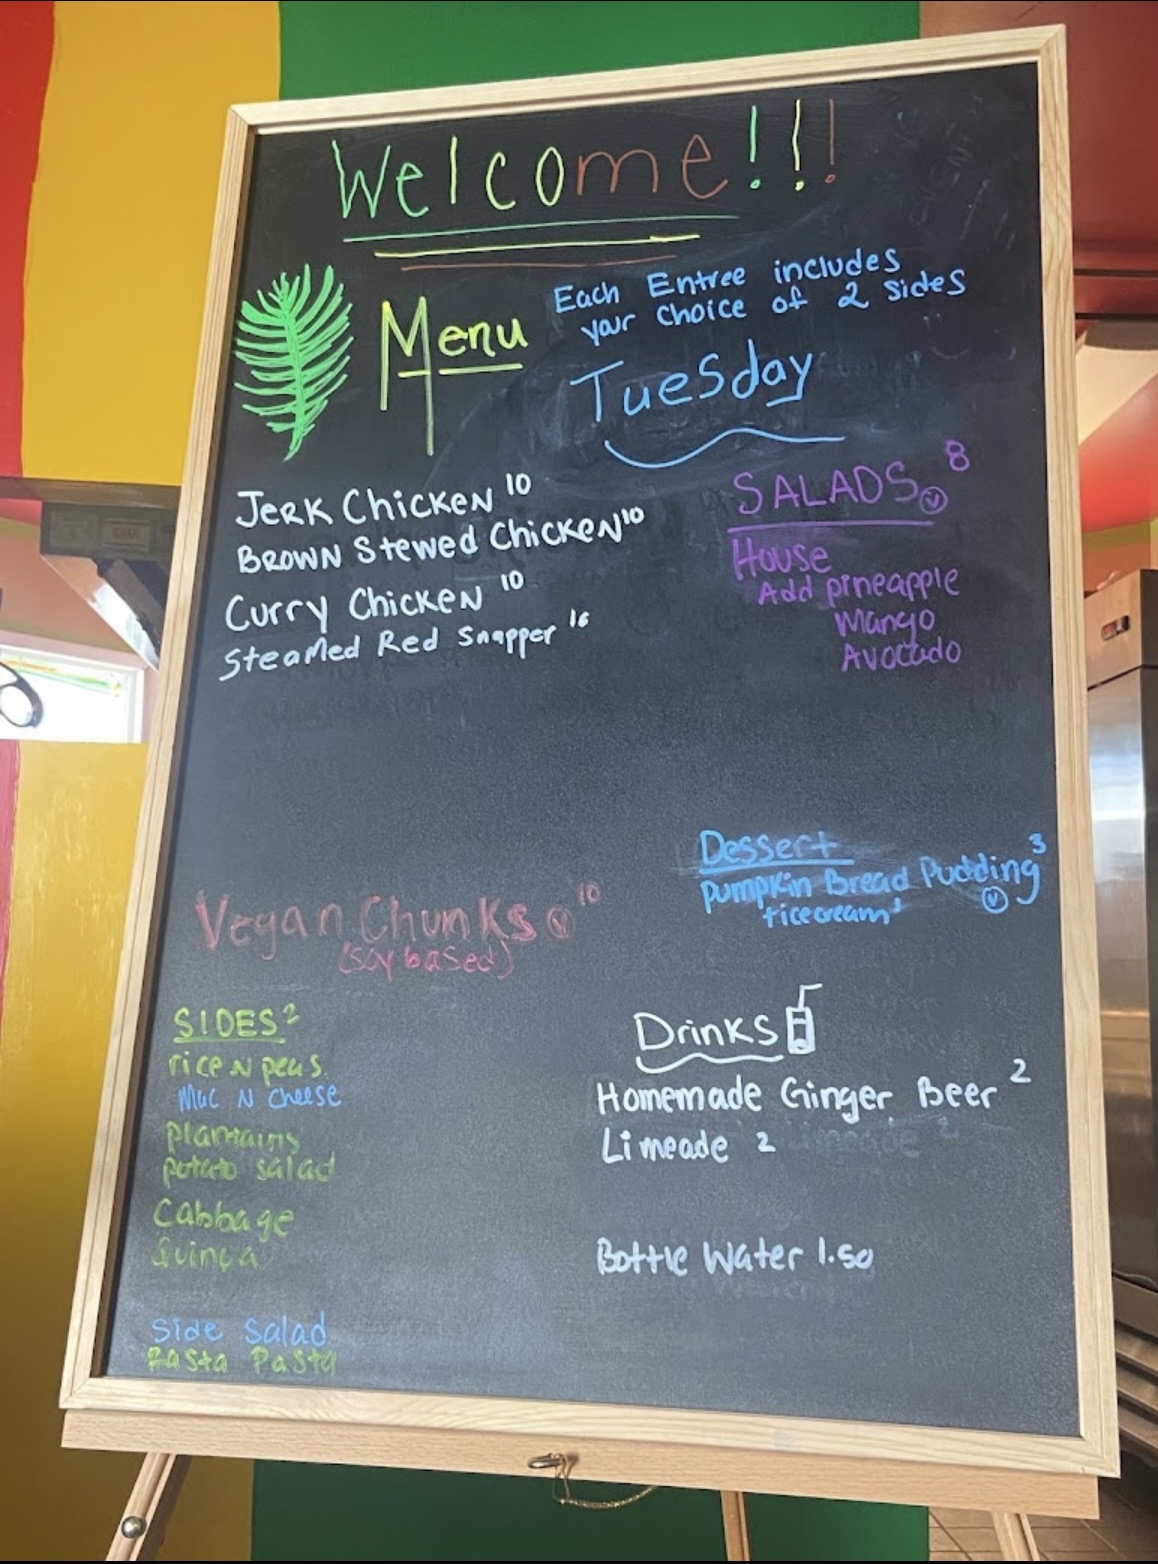 Welcome!!!
Menu
Each Entree includes
your choice of 2 sides
Tuesday
Jerk Chicken 10
Brown Stewed Chicken 10
Curry Chicken 10
Steamed Red Snapper 16
SALADS V 8
House
Add pineapple
Mango
Avocado
Vegan Chunks V 10
(soy based)
Dessert
Pumpkin Bread Pudding 3
+icecream' V
SIDES 2
rice N peas.
Mac N Cheese
plantains
potato salad
Cabbage
Side Salad
Rasta Pasta
Drinks
Homemade Ginger Beer 2
Limeade 2
Bottle Water 1.50